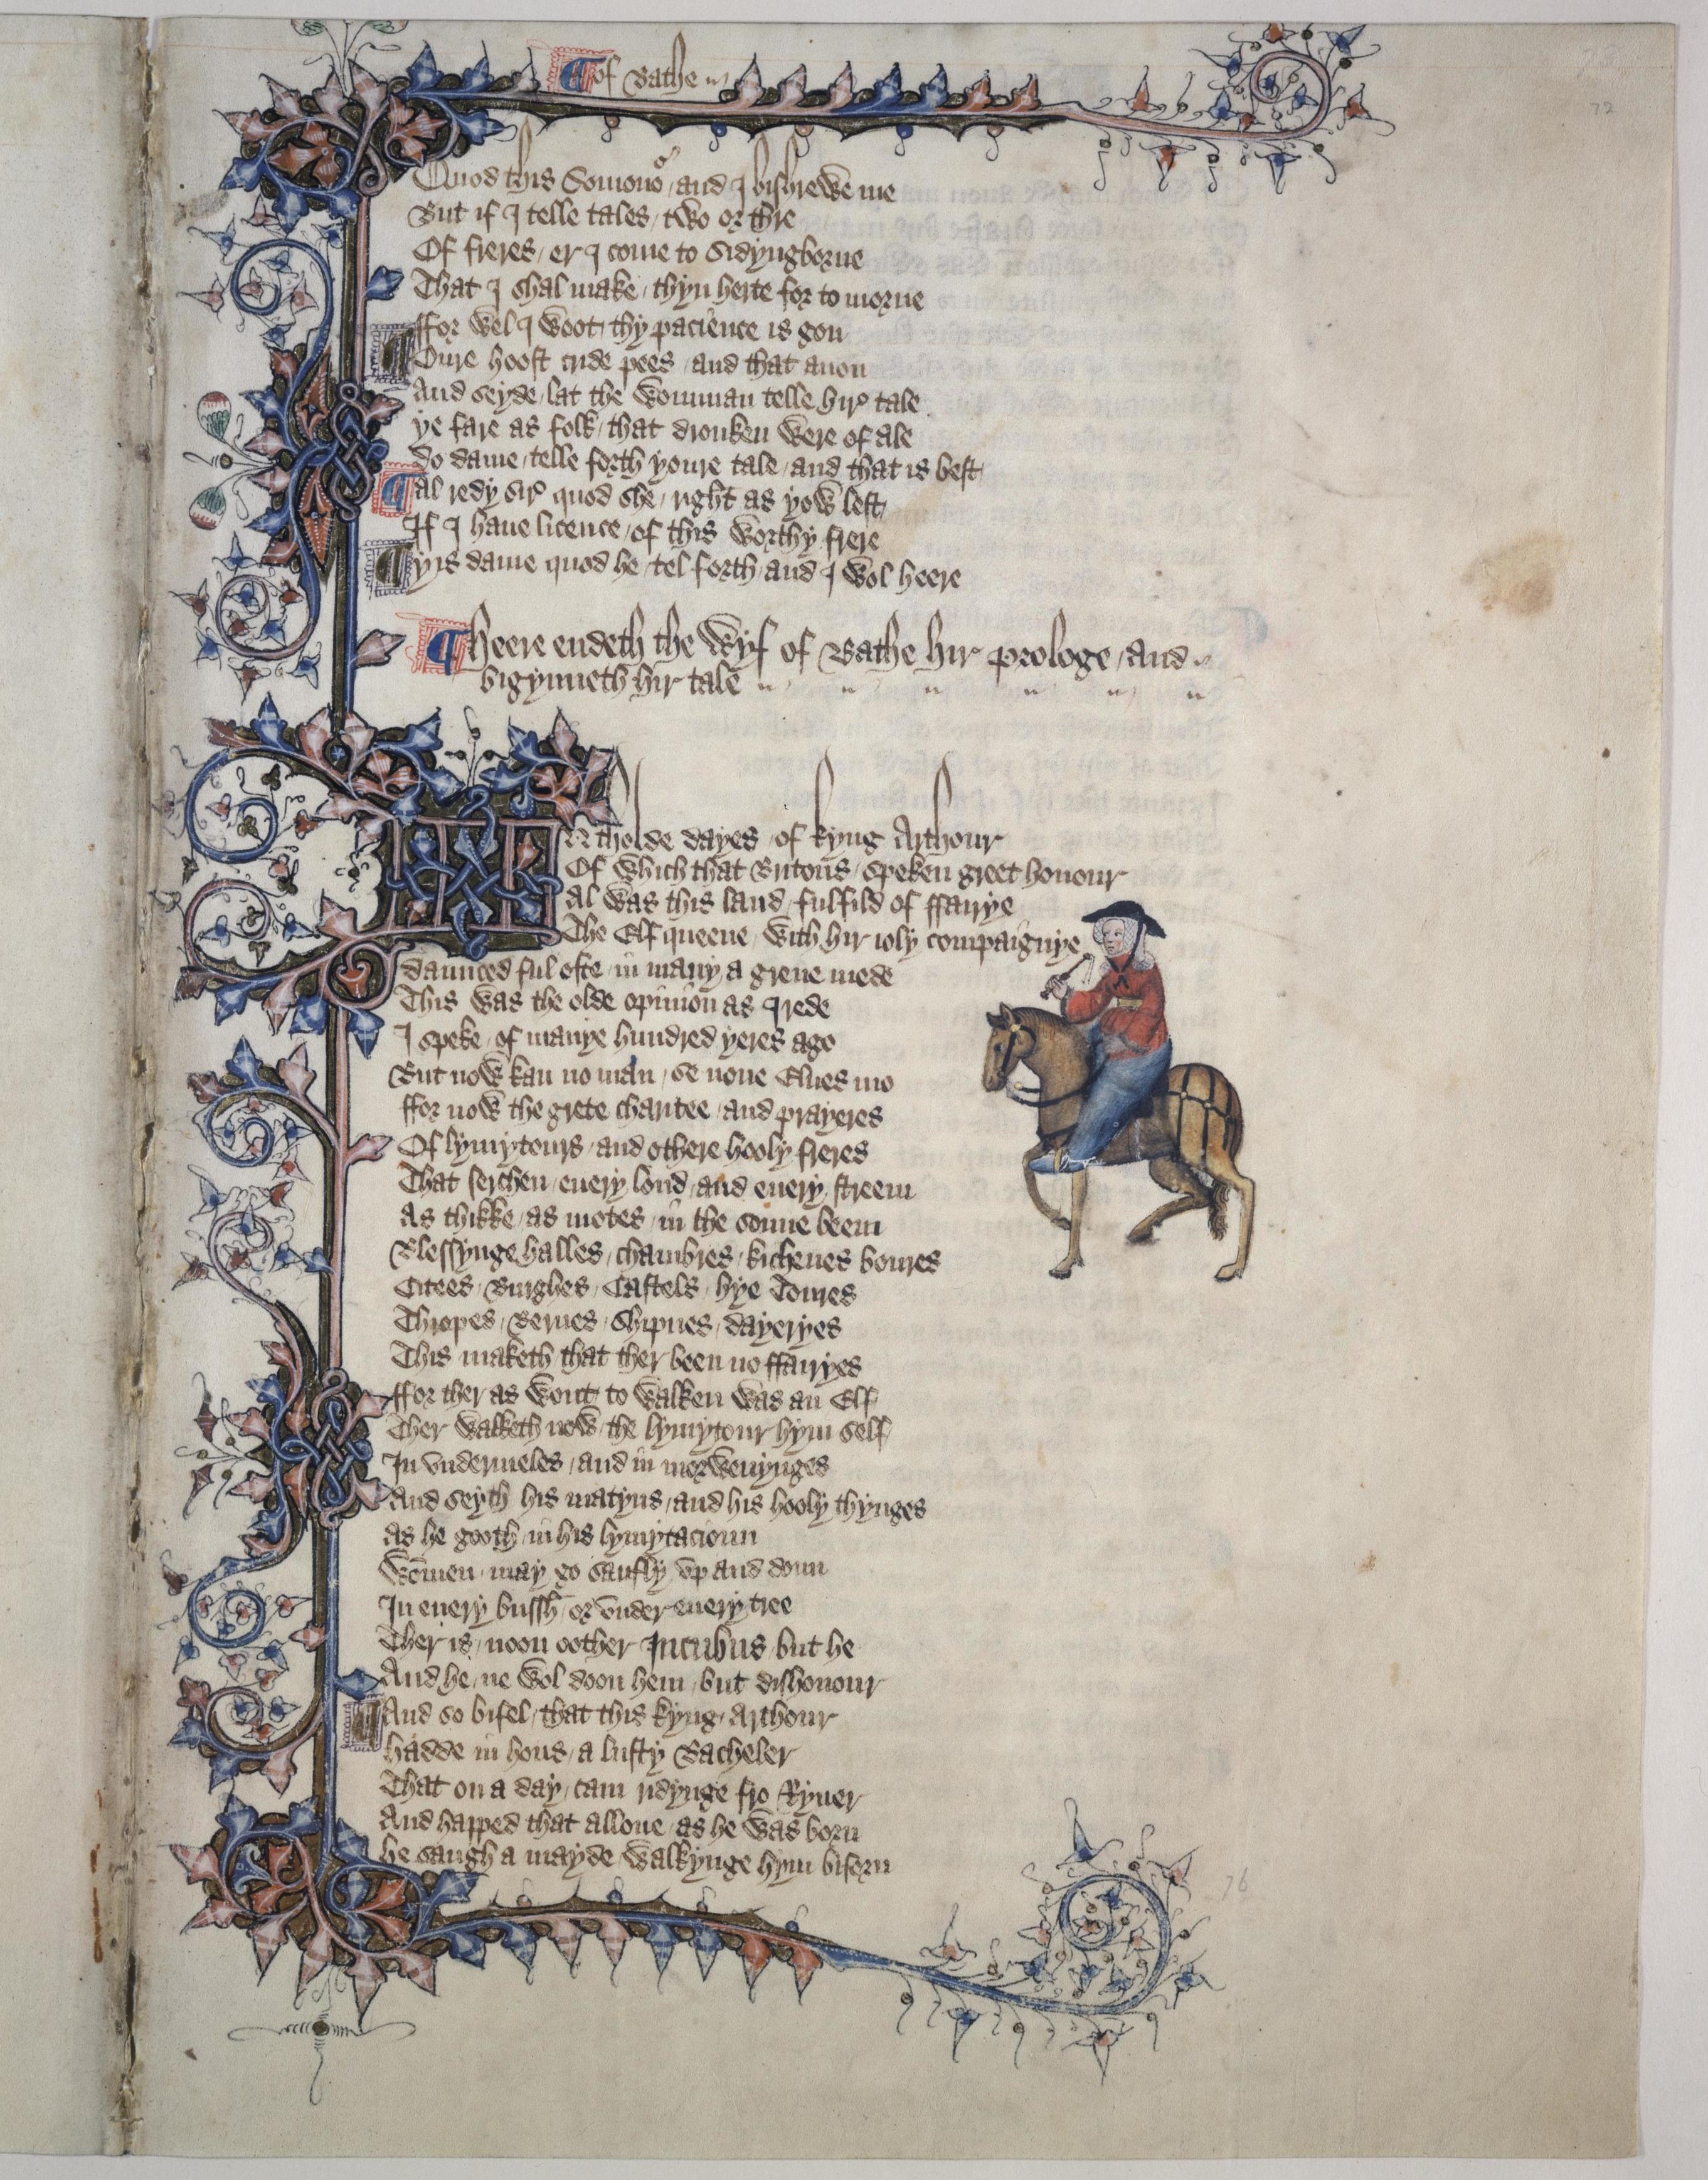 ¶ Of Bathe
72
Quod this Somonour / and I bishrewe me
But if I telle tales / two or thre
Of freres / er I come to Sidyngborne
That I shal make / thyn herte for to morne
ffor wel I woot / thy pacience is gon
¶ Oure hoost cride pees / and that anon
And seyde / lat the womman telle hir tale
ye fare as folk / that dronken were of ale
Do dame / telle forth youre tale / and that is best
¶ Al redy sire quod she / right as yow lest
If I haue licence / of this worthy frere
¶ yis dame quod he / tel forth and I wol heere
¶ Heere endeth the Wyf of Bathe hir prologe / and
bigynneth hir tale
IN tholde dayes / of kyng Arthour
Of which that Britons / speken greet honour
Al was this land / fulfild of ffairye
The Elf queene / with hir ioly compaignye
daunced ful ofte / in many a grene mede
This was the olde opinion as I rede
I speke / of manye hundred yeres ago
But now kan no man / se none Elues mo
ffor now the grete charitee / and prayeres
Of lymytours / and othere hooly freres
That serchen / euery lond / and euery streem
As thikke / as motes / in the sonne beem
Blessynge halles / chambres / kichenes boures
Citees / Burghes / Castels / hye Toures
Thropes / Bernes / Shipnes / dayeryes
This maketh that ther been no ffairyes
ffor ther as wont to walken was an Elf
Ther walketh now / the lymytour hym self
In vndermeles / and in morwenynges
And seyth his matyns / and his hooly thynges
As he gooth / in his lymytacioun
Wommen / may go saufly vp and doun
In euery bussh / or vnder euery tree
Ther is / noon oother Incubus / but he
And he / ne wol doon hem / but dishonour
¶ And so bifel / that this kyng / Arthour
hadde in hous / a lusty Bacheler
That on a day / cam ridynge fro Ryuer
And happed that allone / as he was born
he saugh a mayde / walkynge hym biforn
76